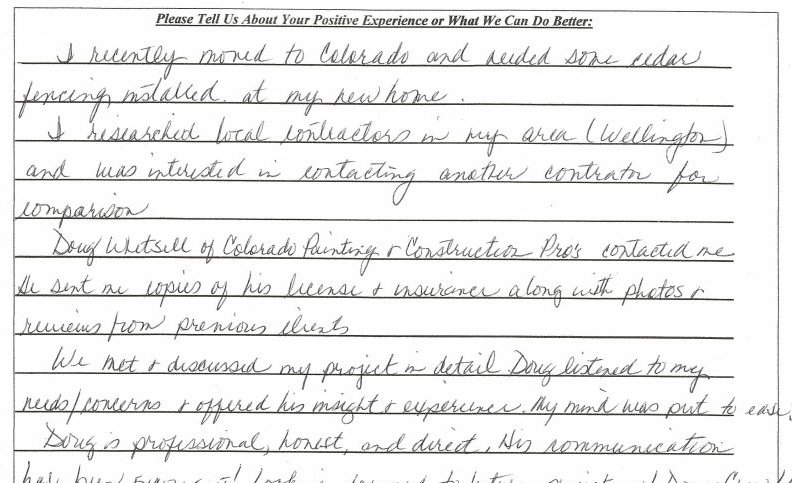 Please Tell Us About Your Positive Experience or What We Can Do Better:
I recently moved to Colorado and needed some cedar
fencing installed. at my new home.
I researched local contractors in my area (Wellington)
and was interested in contacting another contrator for
comparison
Doug Whetsell of Colorado Painting & Construction Pro's contacted me
He sent me copies of his license & insurance along with photos &
reviews from previous clients
We met & discussed my project in detail Doug listened to my
needs/concerns & offered his insight & experience. My mind was put to ease.
Doug is professional, honest, and direct. His communication
has been